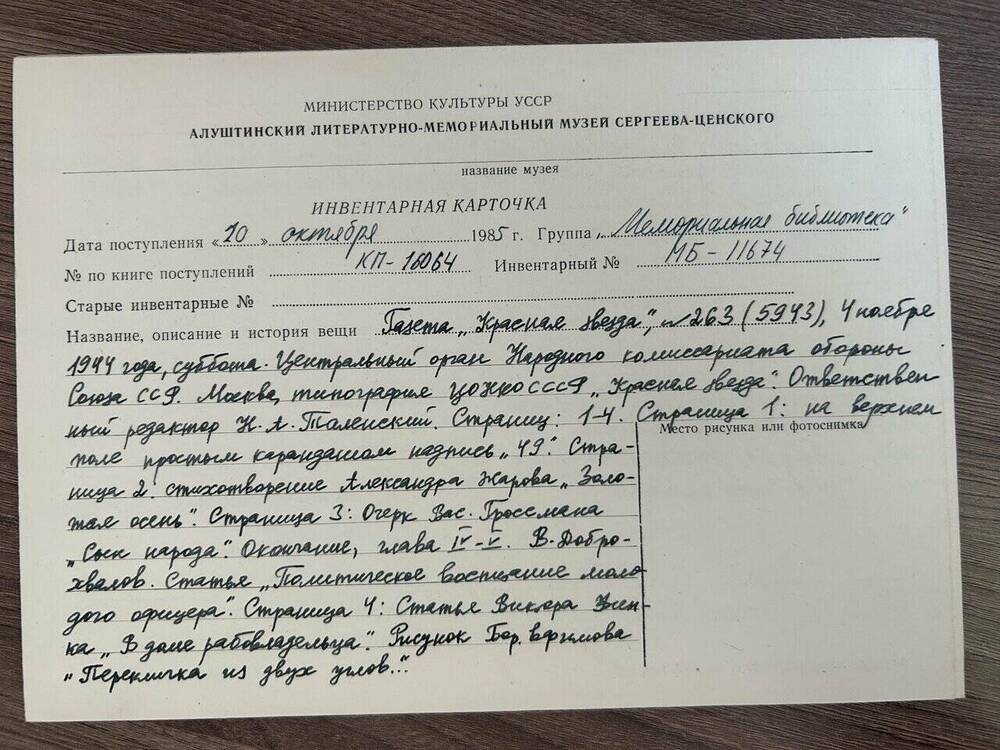 МИНИСТЕРСТВО КУЛЬТУРЫ УССР
АЛУШТИНСКИЙ ЛИТЕРАТУРНО-МЕМОРИАЛЬНЫЙ МУЗЕЙ СЕРГЕЕВА-ЦЕНСКОГО
название музея
ИНВЕНТАРНАЯ КАРТОЧКА
Дата поступления «10» октября 1985 г. Группа „Мемориальная библиотека"
№ по книге поступлений КП-18064 Инвентарный № МБ-11674
Старые инвентарные №
Название, описание и история вещи Газета „Красная звезда", № 263 (5943), 4 ноября
1944 года, суббота. Центральный орган Народного комиссариата обороны
Союза ССР. Москва, типография „Красная звезда". Ответствен
ный редактор Н.А.Таленский. Страниц: 1-4. Страница 1: на верхнем
Место рисунка или фотоснимка
поле простым карандашом надпись „49". Стра-
ница 2. стихотворение Александра Жарова „Золо-
тая осень". Страница 3: Очерк Вас. Гроссмана
„Сын народа". Окончание, глава IV-V. В. Добро-
хвалов. Статья „Политическое воспитание моло
дого офицера". Страница 4: Статья Виктора
ка „В доме рабовладельца". Рисунок Бор. Ефимова
"Перекличка из двух углов..."